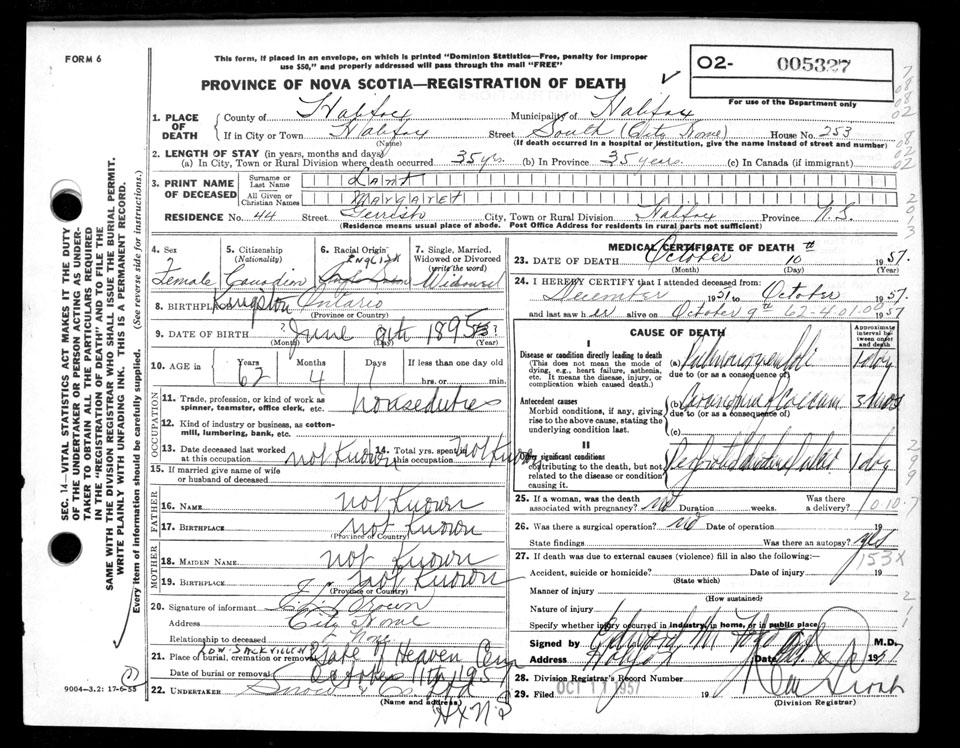 FORM 6
This form, if placed in an envelope, on which is printed "Dominion Statistics—Free, penalty for improper
use $50," and properly addressed will pass through the mail "FREE"
PROVINCE OF NOVA SCOTIA—REGISTRATION OF DEATH
O2- 005327
For use of the Department only
1. PLACE OF DEATH
County of Halifax Municipality of Halifax
If in City or Town Halifax Street South (City Home) House No. 253
(Name) (If death occurred in a hospital or institution, give the name instead of street and number)
2. LENGTH OF STAY (in years, months and days)
(a) In City, Town or Rural Division where death occurred 35 yrs. (b) In Province 35 years. (c) In Canada (if immigrant)
3. PRINT NAME OF DECEASED
Surname or Last Name Lant
All Given or Christian Names Margaret
RESIDENCE No. 44 Street Gerrish City, Town or Rural Division Halifax Province N.S.
(Residence means usual place of abode. Post Office Address for residents in rural parts not sufficient)
4. Sex Female
5. Citizenship (Nationality) Canadian
6. Racial Origin ENGLISH
7. Single, Married, Widowed or Divorced (write the word) Widowed
8. BIRTHPLACE Kingston Ontario
(Province or Country)
9. DATE OF BIRTH June 9th 1895
(Month) (Day) (Year)
10. AGE in Years 62 Months 4 Days 1 If less than one day old
hrs. or min.
OCCUPATION
11. Trade, profession, or kind of work as spinner, teamster, office clerk, etc. houseduties
12. Kind of industry or business, as cotton-mill, lumbering, bank, etc.
13. Date deceased last worked at this occupation not Known
14. Total yrs. spent in this occupation not Known
15. If married give name of wife or husband of deceased
FATHER
16. NAME not Known
17. BIRTHPLACE not Known
(Province or Country)
MOTHER
18. MAIDEN NAME not Known
19. BIRTHPLACE not Known
(Province or Country)
20. Signature of informant Brown
Address City Home
Relationship to deceased None
LOW. SACKVILLE
21. Place of burial, cremation or removal Gate of Heaven Cem
Date of burial or removal October 11th 1957
22. UNDERTAKER Snow & Co Ltd
(Name and address)
Hx N.S
MEDICAL CERTIFICATE OF DEATH
23. DATE OF DEATH October 10th 1957.
(Month) (Day) (Year)
24. I HEREBY CERTIFY that I attended deceased from:
December 1951 to October 1957.
and last saw her alive on October 9th 1957
62-4.01.00
CAUSE OF DEATH
Approximate interval between onset and death
I
Disease or condition directly leading to death
(This does not mean the mode of dying, e.g., heart failure, asthenia, etc. It means the disease, injury, or complication which caused death.)
(a) 1 day
due to (or as a consequence of)
Antecedent causes
Morbid conditions, if any, giving rise to the above cause, stating the underlying condition last.
(b) Carcinoma of Caecum
due to (or as a consequence of)
(c)
II
significant conditions contributing to the death, but not related to the disease or condition causing it.
1 day
25. If a woman, was the death associated with pregnancy? no Duration weeks. Was there a delivery?
26. Was there a surgical operation? no Date of operation 19
State findings Was there an autopsy? yes
153X
27. If death was due to external causes (violence) fill in also the following:—
Accident, suicide or homicide? Date of injury 19
(State which)
Manner of injury
(How sustained)
Nature of injury
Specify whether injury occurred in industry, in home, or in public place
Signed by M.D.
Address Halifax Date 1957
28. Division Registrar's Record Number
29. Filed OCT 11 1957 19
(Division Registrar)
SEC. 14—VITAL STATISTICS ACT MAKES IT THE DUTY
OF THE UNDERTAKER OR PERSON ACTING AS UNDER-
TAKER TO OBTAIN ALL THE PARTICULARS REQUIRED
IN THE "REGISTRATION OF DEATH" AND TO FILE THE
SAME WITH THE DIVISION REGISTRAR WHO SHALL ISSUE THE BURIAL PERMIT.
WRITE PLAINLY WITH UNFADING INK. THIS IS A PERMANENT RECORD.
Every item of information should be carefully supplied. (See reverse side for instructions.)
9004-3.2: 17-6-55